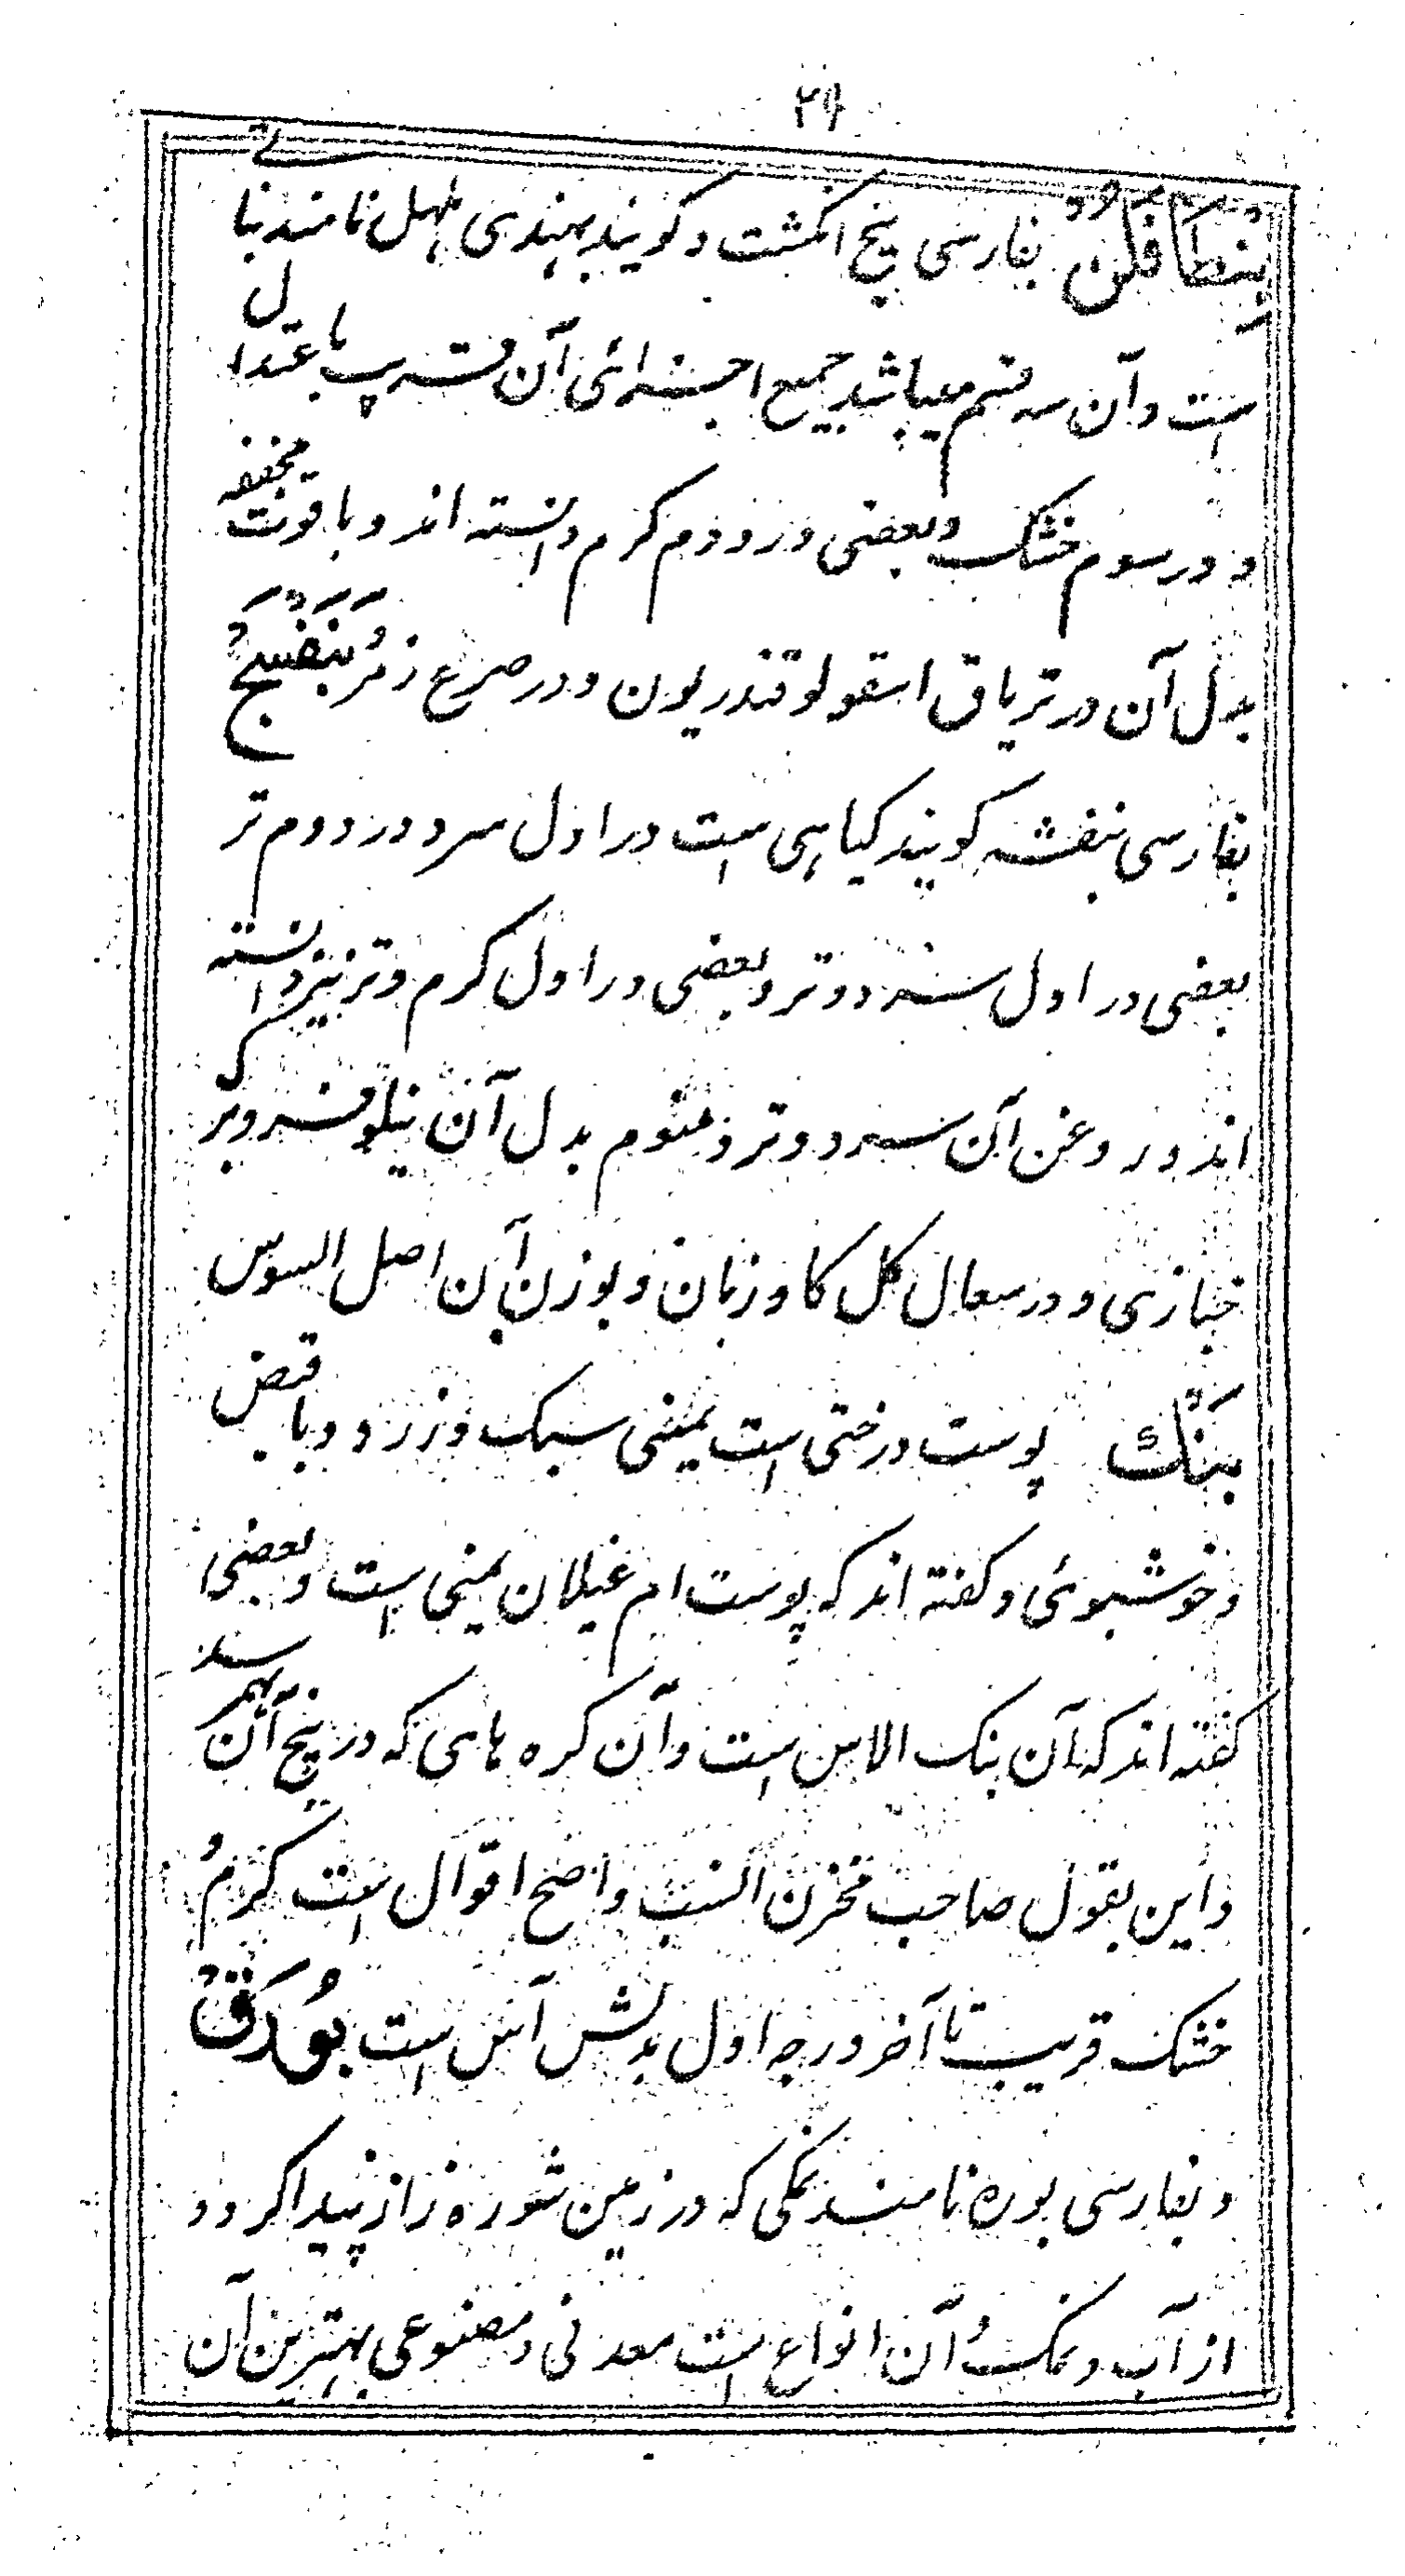 ۲۹
بنطافلن بفارسی پنج انکشت و کویند بهندی پلهل نامند نباتی
است و آن سه قسم میباشد جمیع اجزائی آن قریب باعتدال
و در سوم خشک و بعضی در دوم کرم دانسته اند و با قوت مخففه
بدل آن در تریاق اسقولوقندریون و در صرع زمرد بَنَفْسَجُ
بفارسی بنفشه کویند کیاهی است در اول سرد و در دوم تر
بعضی در اول سرد و تر و بعضی در اول کرم و تر نیز دانسته
اند و روغن آن سرد و تر و منوم بدل آن نیلوفر و برک
خبازی و در سعال کل کاوزبان و بوزن آن اصل السوس
بَنْك پوست درختی است یمنی سبک و زرد و با قبض
و خوشبوئی و کفته اند که پوست ام غیلان یمنی است و بعضی
کفته اند که آن بنک الاس است و آن کره های که در بیخ آن بهم رسد
و این بقول صاحب مخزن انسب و اصح اقوال است کرم و
خشک قریب تا آخر درجه اول بدلش آس است بُورَق
و بفارسی بوره نامند نمکی که در زمین شوره زار پیدا کردد
از آب و نمک و آن انواع است معدنی و مصنوعی بهترین آن